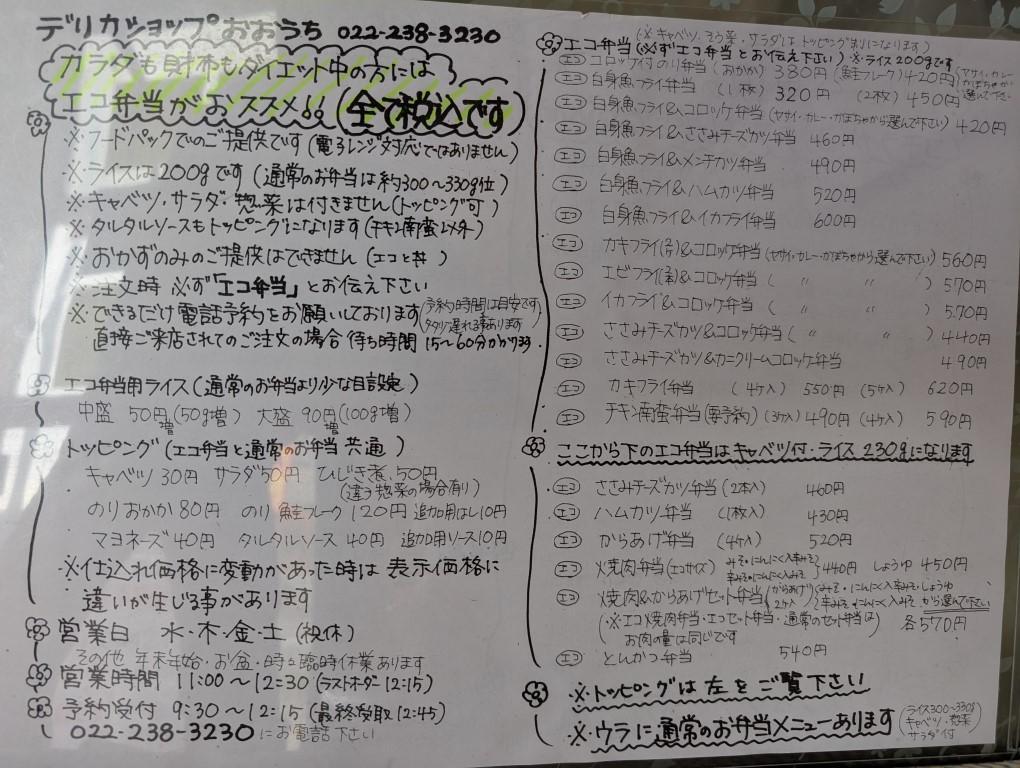 デリカショップ おおうち 022-238-3230
カラダも財布もダイエット中の方には
エコ弁当がおススメ!!(全て税込です)
※フードパックでのご提供です(電子レンジ対応ではありません)
※ライスは200gです(通常のお弁当は約300〜330g位)
※キャベツ・サラダ・惣菜は付きません(トッピング可)
※タルタルソースもトッピングになります(チキン南蛮以外)
※おかずのみのご提供はできません(エコと丼)
※注文時 必ず「エコ弁当」とお伝え下さい
※できるだけ電話予約をお願いしております(予約時間は目安です
多少遅れる事あります)
直接ご来店されてのご注文の場合 待ち時間 15〜60分かかります
エコ弁当用ライス(通常のお弁当より少な目設定)
中盛 50円増(50g増) 大盛 90円増(100g増)
トッピング(エコ弁当と通常のお弁当 共通)
キャベツ 30円 サラダ 50円 ひじき煮 50円
(違う惣菜の場合有り)
のり おかか 80円 のり 鮭フレーク 120円 追加用はし10円
マヨネーズ 40円 タルタルソース 40円 追加用ソース10円
※仕入れ価格に変動があった時は 表示価格に
違いが生じる事があります
営業日 水・木・金・土 (祝休)
その他 年末年始・お盆・時々臨時休業あります
営業時間 11:00〜12:30(ラストオーダー 12:15)
予約受付 9:30〜12:15(最終受取 12:45)
022-238-3230 にお電話下さい
(※キャベツ・そう菜・サラダはトッピングありになります)
エコ弁当(※必ずエコ弁当とお伝え下さい) ※ライス200gです
エコ コロッケ付のり弁当(おかか) 380円 (鮭フレーク) 420円 (ヤサイ・カレー・かぼちゃから選んで下さい)
エコ 白身魚フライ弁当 (1枚) 320円 (2枚) 450円
エコ 白身魚フライ&コロッケ弁当(ヤサイ・カレー・かぼちゃから選んで下さい) 420円
エコ 白身魚フライ&ささみチーズカツ弁当 460円
エコ 白身魚フライ&メンチカツ弁当 490円
エコ 白身魚フライ&ハムカツ弁当 520円
エコ 白身魚フライ&イカフライ弁当 600円
エコ カキフライ&コロッケ弁当(ヤサイ・カレー・かぼちゃから選んで下さい) 560円
エコ エビフライ&コロッケ弁当( 〃 〃 ) 570円
エコ イカフライ&コロッケ弁当( 〃 〃 ) 570円
エコ ささみチーズカツ&コロッケ弁当( 〃 〃 ) 440円
エコ ささみチーズカツ&カニクリームコロッケ弁当 490円
エコ カキフライ弁当 (4ヶ入) 550円 (5ヶ入) 620円
エコ チキン南蛮弁当(要予約) (3ヶ入) 490円 (4ヶ入) 590円
ここから下のエコ弁当はキャベツ付・ライス 230gになります
エコ ささみチーズカツ弁当 (2本入) 460円
エコ ハムカツ弁当 (1枚入) 430円
エコ からあげ弁当 (4ヶ入) 520円
エコ 焼肉弁当(エコサイズ) みそ・にんにく入辛みそ
辛みそ・にんにく入みそ 440円 しょうゆ 450円
エコ 焼肉&からあげセット弁当(からあげ2ヶ入) (みそ・にんにく入辛みそ・しょうゆ
辛みそ・にんにく入みそ から選んで下さい
(※エコ焼肉弁当・エコセット弁当・通常のセット弁当は
お肉の量は同じです) 各570円
エコ とんかつ弁当 540円
※トッピングは 左を ご覧下さい
※ウラに通常のお弁当メニューあります(ライス300〜330g
キャベツ・惣菜
サラダ付)